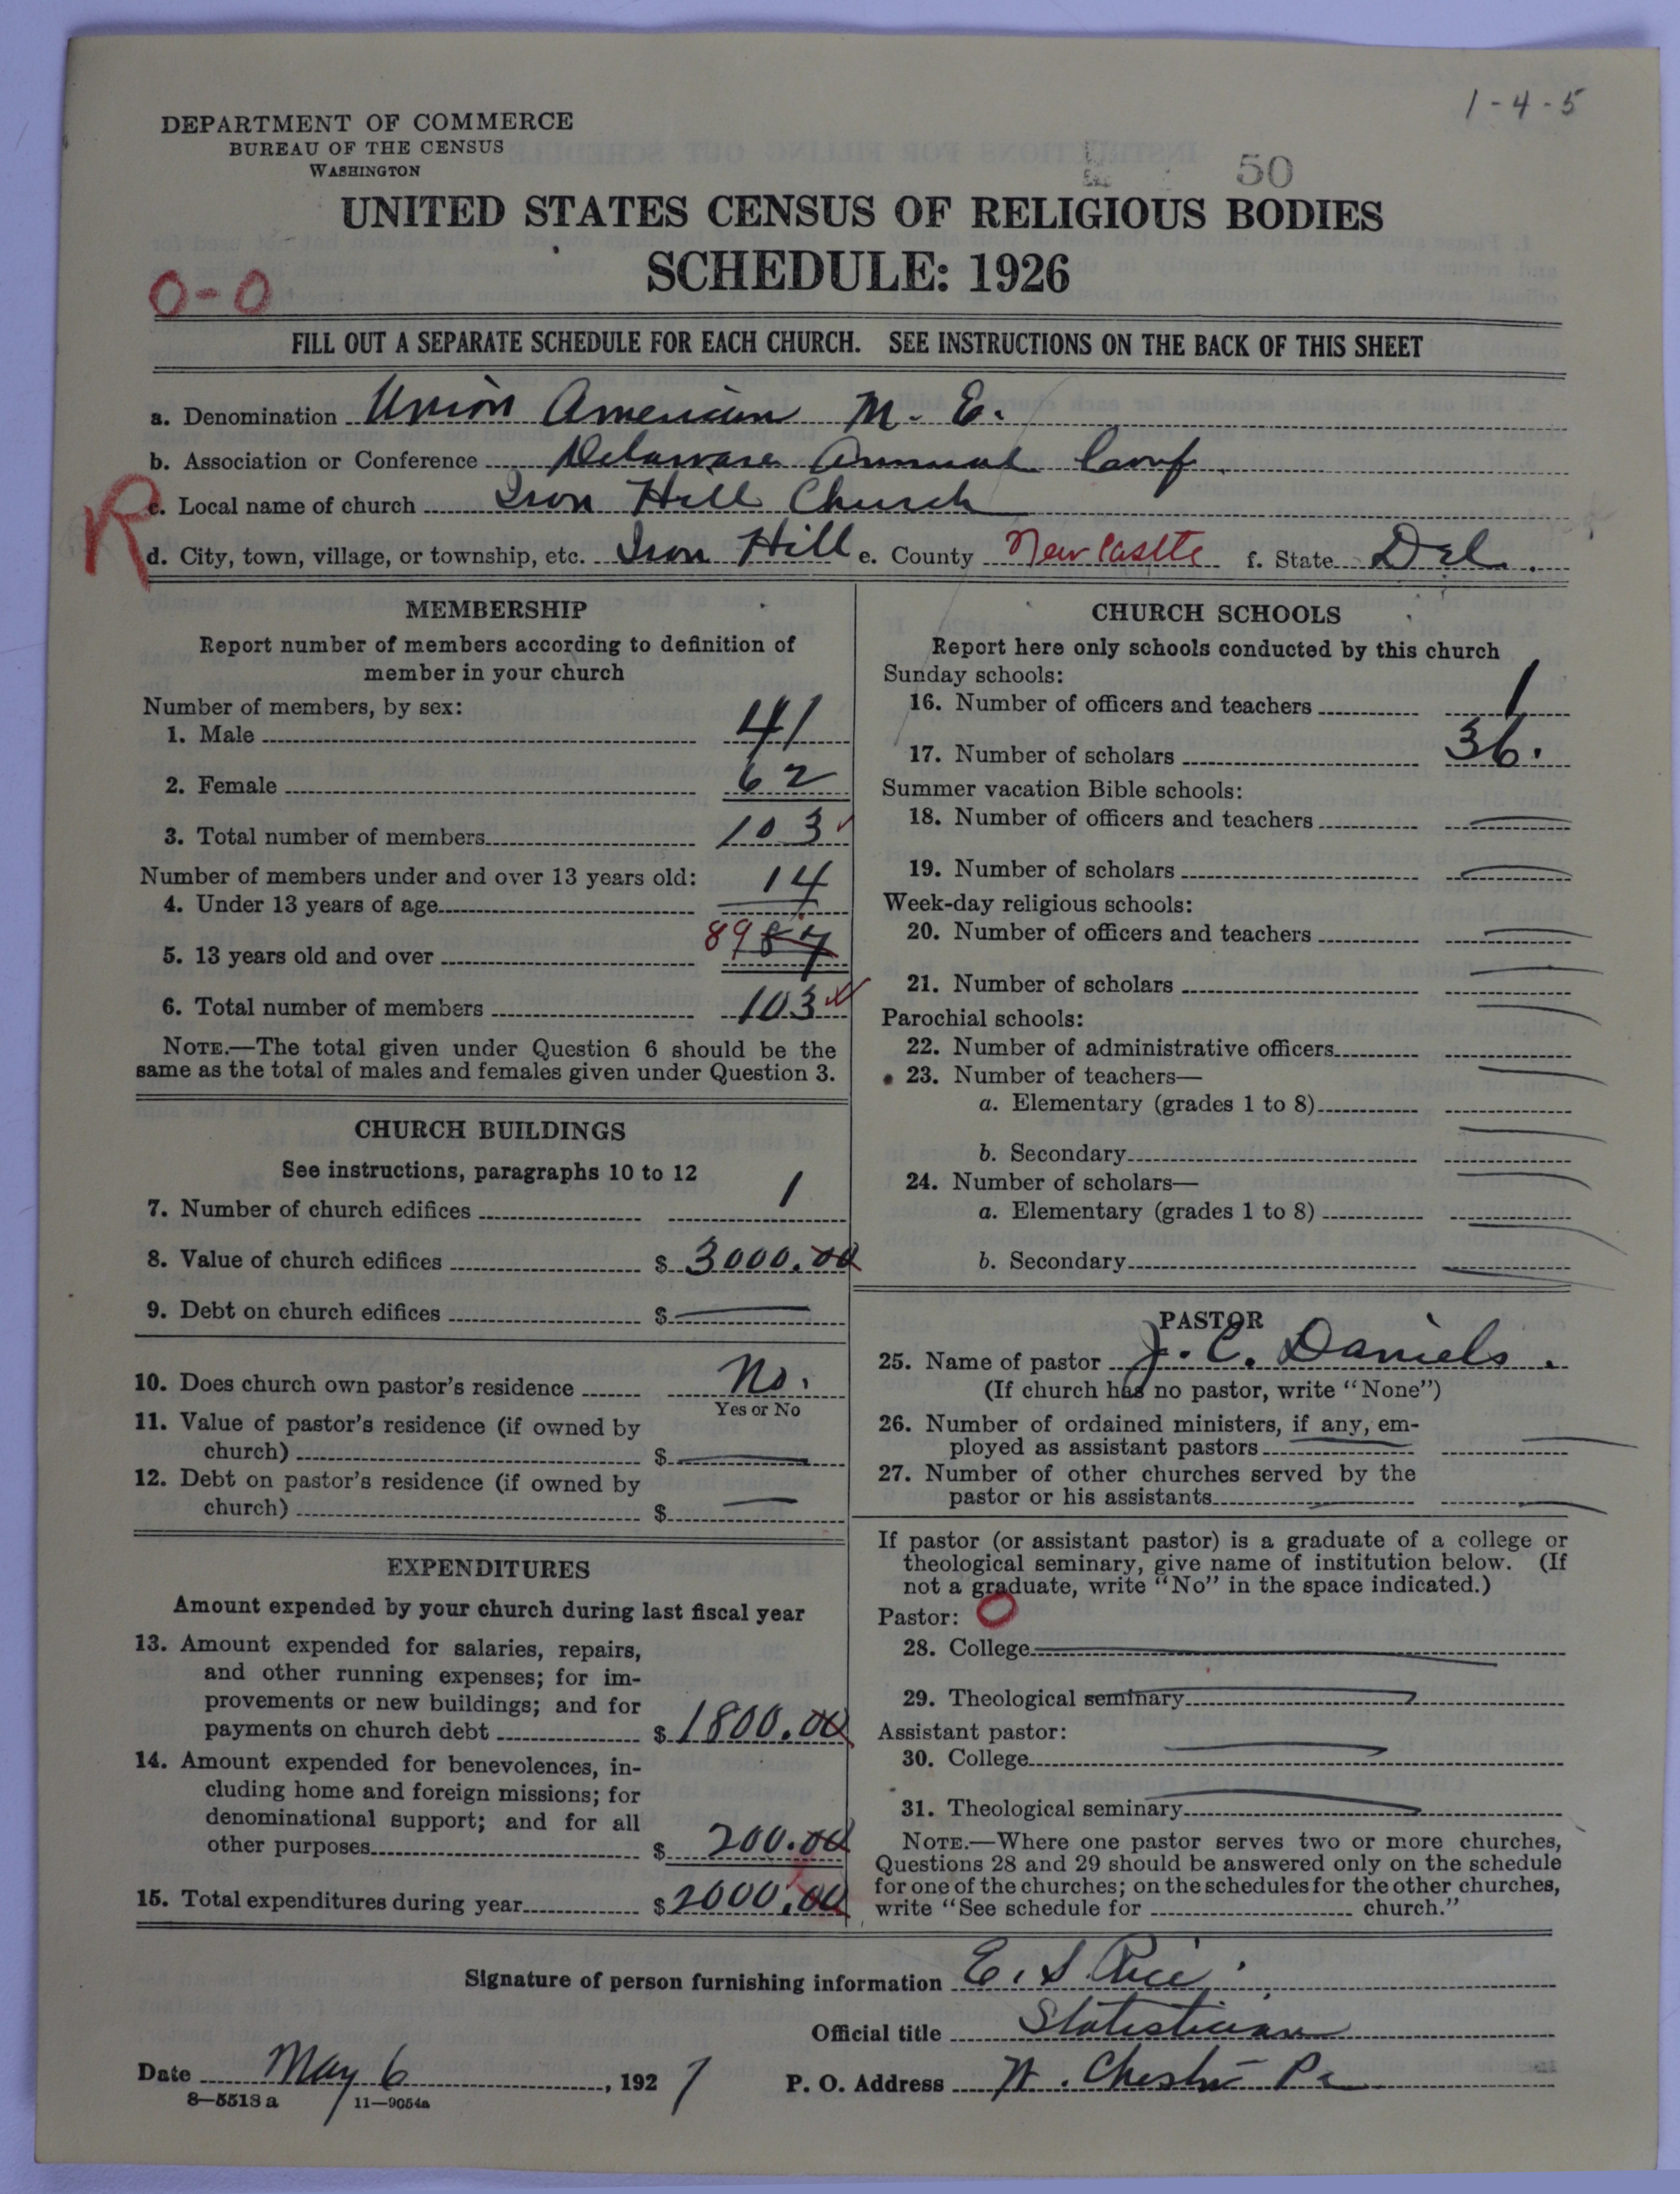 1-4-5
DEPARTMENT OF COMMERCE
BUREAU OF THE CENSUS
WASHINGTON
50
UNITED STATES CENSUS OF RELIGIOUS BODIES
SCHEDULE: 1926
0-0
FILL OUT A SEPARATE SCHEDULE FOR EACH CHURCH. SEE INSTRUCTIONS ON THE BACK OF THIS SHEET
a. Denomination Union American M. E.
b. Association or Conference Delaware Annual Conf.
R
c. Local name of church Iron Hill Church
d. City, town, village, or township, etc. Iron Hill e. County New Castle f. State Del.
MEMBERSHIP
Report number of members according to definition of
member in your church
Number of members, by sex:
1. Male 41
2. Female 62
3. Total number of members 103
Number of members under and over 13 years old:
4. Under 13 years of age 14
5. 13 years old and over 89 87
6. Total number of members 103
NOTE.—The total given under Question 6 should be the
same as the total of males and females given under Question 3.
CHURCH BUILDINGS
See instructions, paragraphs 10 to 12
7. Number of church edifices 1
8. Value of church edifices $ 3000.00
9. Debt on church edifices $
10. Does church own pastor's residence No.
Yes or No
11. Value of pastor's residence (if owned by
church) $
12. Debt on pastor's residence (if owned by
church) $
EXPENDITURES
Amount expended by your church during last fiscal year
13. Amount expended for salaries, repairs,
and other running expenses; for im-
provements or new buildings; and for
payments on church debt $ 1800.00
14. Amount expended for benevolences, in-
cluding home and foreign missions; for
denominational support; and for all
other purposes $ 200.00
15. Total expenditures during year $ 2000.00
CHURCH SCHOOLS
Report here only schools conducted by this church
Sunday schools:
16. Number of officers and teachers 1
17. Number of scholars 36.
Summer vacation Bible schools:
18. Number of officers and teachers
19. Number of scholars
Week-day religious schools:
20. Number of officers and teachers
21. Number of scholars
Parochial schools:
22. Number of administrative officers
23. Number of teachers—
a. Elementary (grades 1 to 8)
b. Secondary
24. Number of scholars—
a. Elementary (grades 1 to 8)
b. Secondary
PASTOR
25. Name of pastor J. C. Daniels.
(If church has no pastor, write "None")
26. Number of ordained ministers, if any, em-
ployed as assistant pastors
27. Number of other churches served by the
pastor or his assistants
If pastor (or assistant pastor) is a graduate of a college or
theological seminary, give name of institution below. (If
not a graduate, write "No" in the space indicated.)
Pastor: 0
28. College
29. Theological seminary
Assistant pastor:
30. College
31. Theological seminary
NOTE.—Where one pastor serves two or more churches,
Questions 28 and 29 should be answered only on the schedule
for one of the churches; on the schedules for the other churches,
write "See schedule for church."
Signature of person furnishing information E. S. Rice
Official title Statistician
Date May 6, 1927 P. O. Address W. Chester Pa
8—5513a 11—9054a